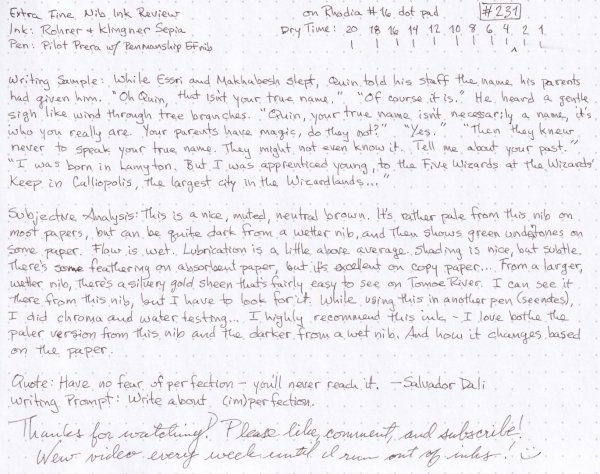 Extra Fine Nib Ink Review on Rhodia #16 dot pad #231
Ink: Rohrer & Klingner Sepia Dry Time: 20 18 16 14 12 10 8 6 4 2 1
Pen: Pilot Prera w/ Penmanship EF nib
Writing Sample: While Essri and Makhabesh slept, Quin told his staff the name his parents
had given him. "Oh Quin, that isn't your true name." "Of course it is." He heard a gentle
sigh like wind through tree branches. "Quin, your true name isn't necessarily a name, it's
who you really are. Your parents have magic, do they not?" "Yes." "Then they knew
never to speak your true name. They might not even know it. Tell me about your past."
"I was born in Lamyton. But I was apprenticed young, to the Five Wizards at the Wizards'
Keep in Calliopolis, the largest city in the Wizardlands..."
Subjective Analysis: This is a nice, muted, neutral brown. It's rather pale from this nib on
most papers, but can be quite dark from a wetter nib, and then shows green undertones on
some paper. Flow is wet. Lubrication is a little above average. Shading is nice, but subtle.
There's some feathering on absorbent paper, but it's excellent on copy paper... From a larger,
wetter nib, there's a silvery gold sheen that's fairly easy to see on Tomoe River. I can see it
there from this nib, but I have to look for it. While using this in another pen (see notes),
I did chroma and water testing... I highly recommend this ink - I love bothe the
paler version from this nib and the darker from a wet nib. And how it changes based
on the paper.
Quote: Have no fear of perfection - you'll never reach it. -Salvador Dali
Writing Prompt: Write about (im)perfection.
Thanks for watching! Please like, comment, and subscribe!
New video every week until I run out of inks! :)